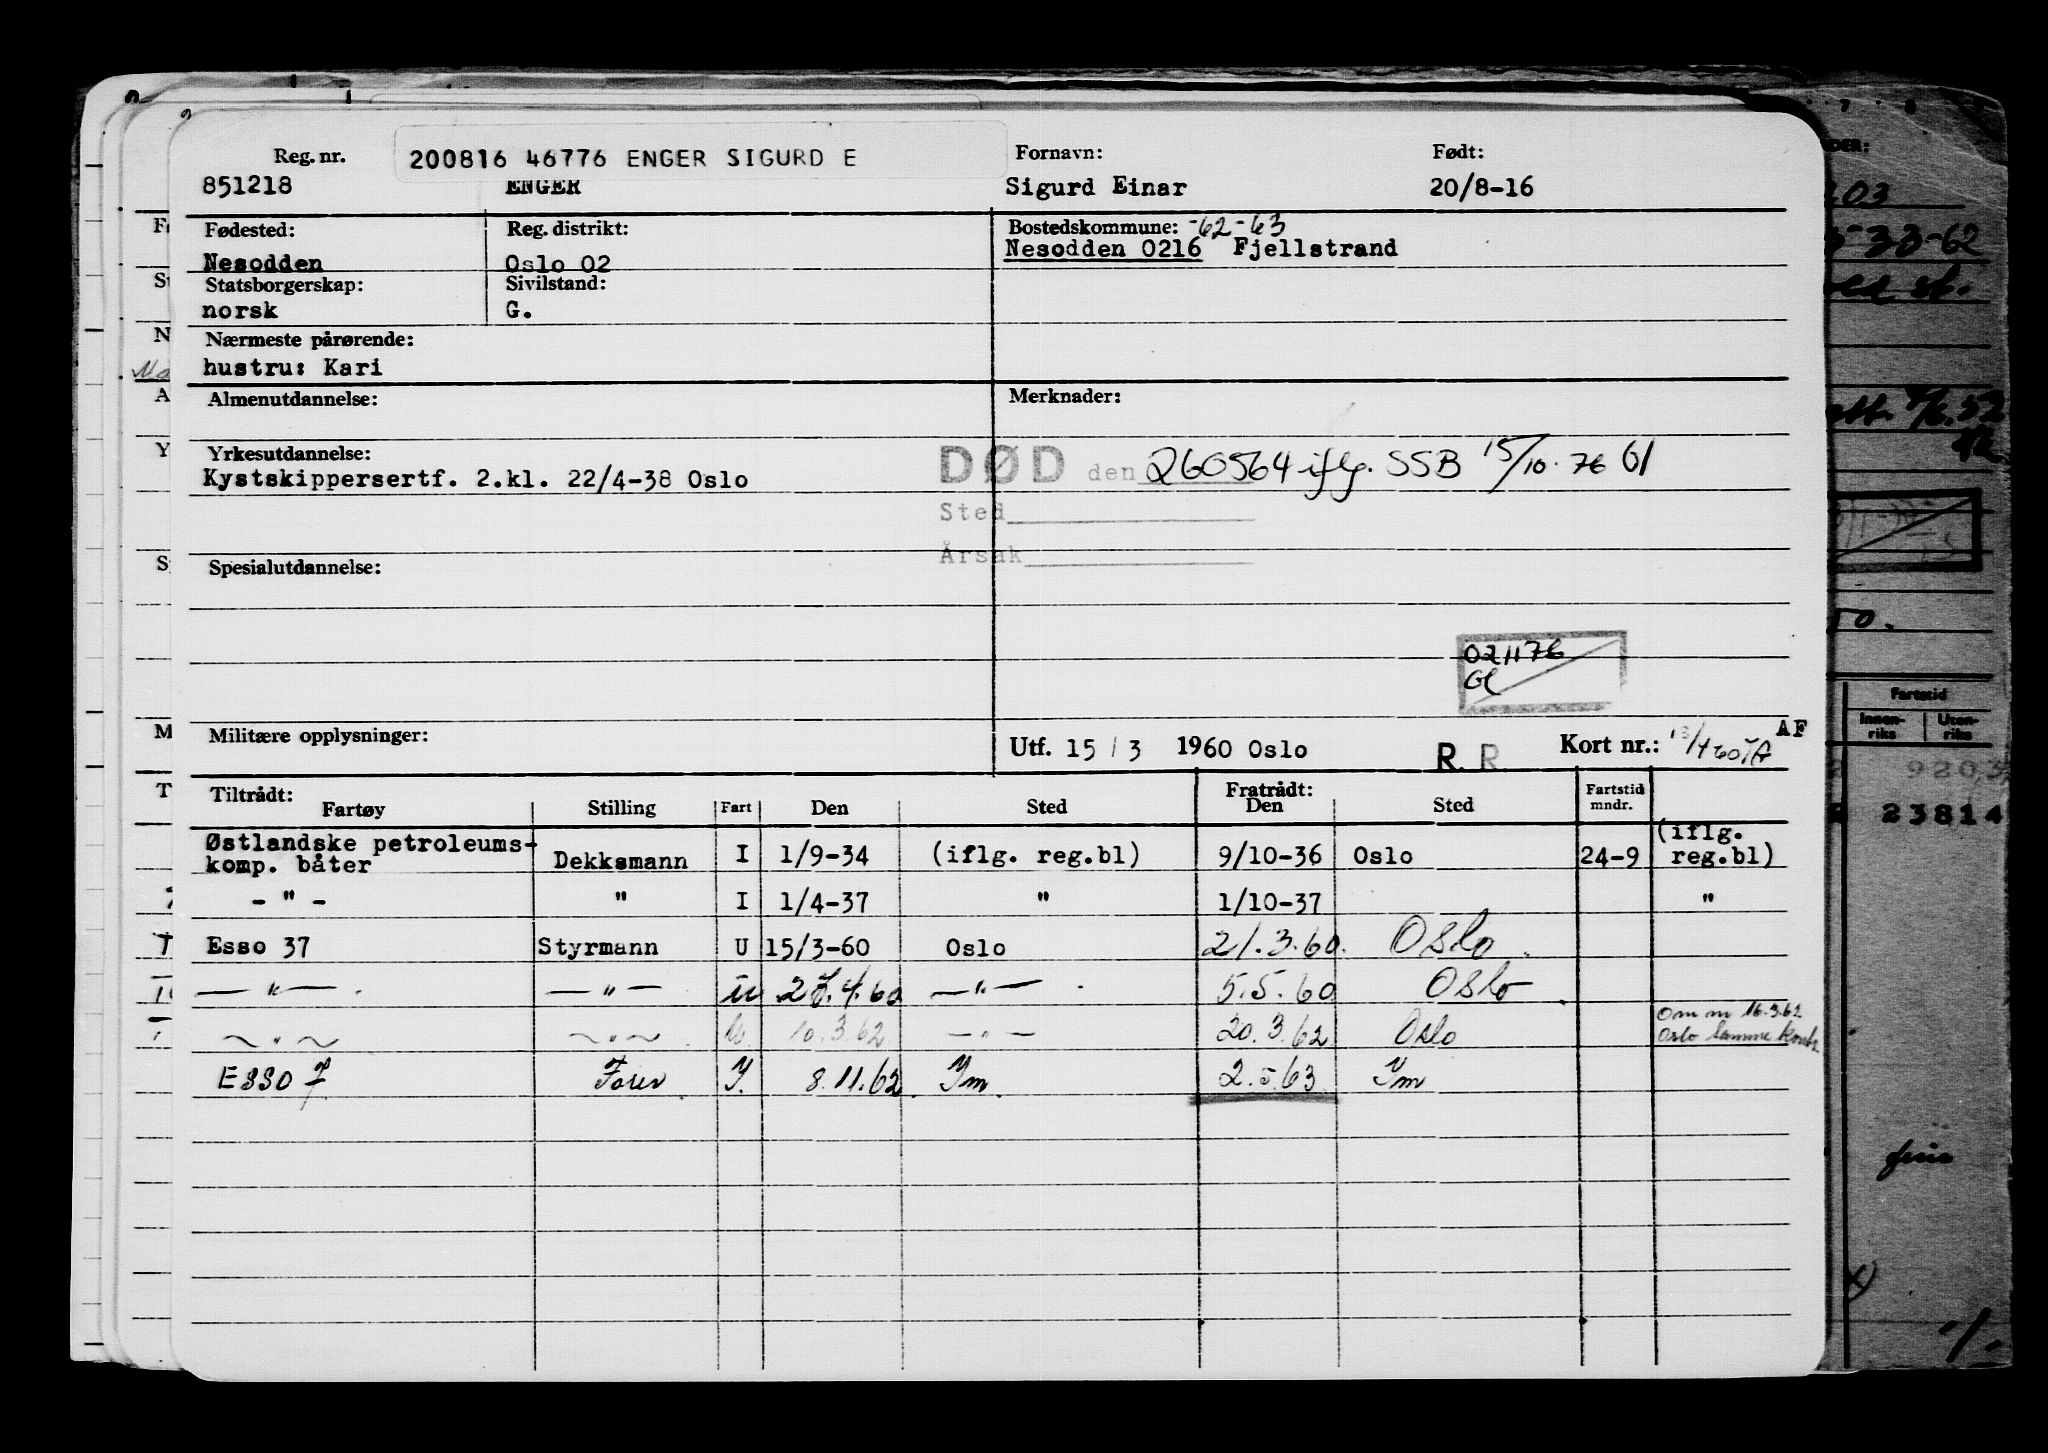 Reg. nr. 200816 46776 ENGER SIGURD E Fornavn: Født:
851218 ENGER Sigurd Einar 20/8-16
Fødested: Reg. distrikt: Bostedskommune: -62-63
Nesodden Oslo 02 Nesodden 0216 Fjellstrand
Statsborgerskap: Sivilstand:
norsk G.
Nærmeste pårørende:
hustru: Kari
Almenutdannelse: Merknader:
Yrkesutdannelse:
Kystskippersertf. 2.kl. 22/4-38 Oslo
DØD den 260564 iflg. SSB 15/10.76 Gl
Sted
Årsak
Spesialutdannelse:
021176
Gl
Militære opplysninger: Utf. 15/3 1960 Oslo R. R Kort nr.: AF
Tiltrådt: Fratrådt: Fartstid
Fartøy Stilling Fart Den Sted Den Sted mndr.
Østlandske petroleums- (iflg.
komp. båter Dekksmann I 1/9-34 (iflg. reg.bl) 9/10-36 Oslo 24-9 reg.bl)
- " - " I 1/4-37 " 1/10-37 "
Esso 37 Styrmann U 15/3-60 Oslo 21.3.60. Oslo
— " — — " — u 27.4.60 — " — 5.5.60 Oslo
Om m 16.3.62
~ " ~ ~ " ~ U. 10.3.62 — " — 20.3.62 Oslo Oslo samme kontr.
ESSO 7 Fører I. 8.11.62 Im 2.5.63 Im
03
-62
st.
4/6.52
50.
Fartstid
Innen-
riks
Uten-
riks
920,3
23814